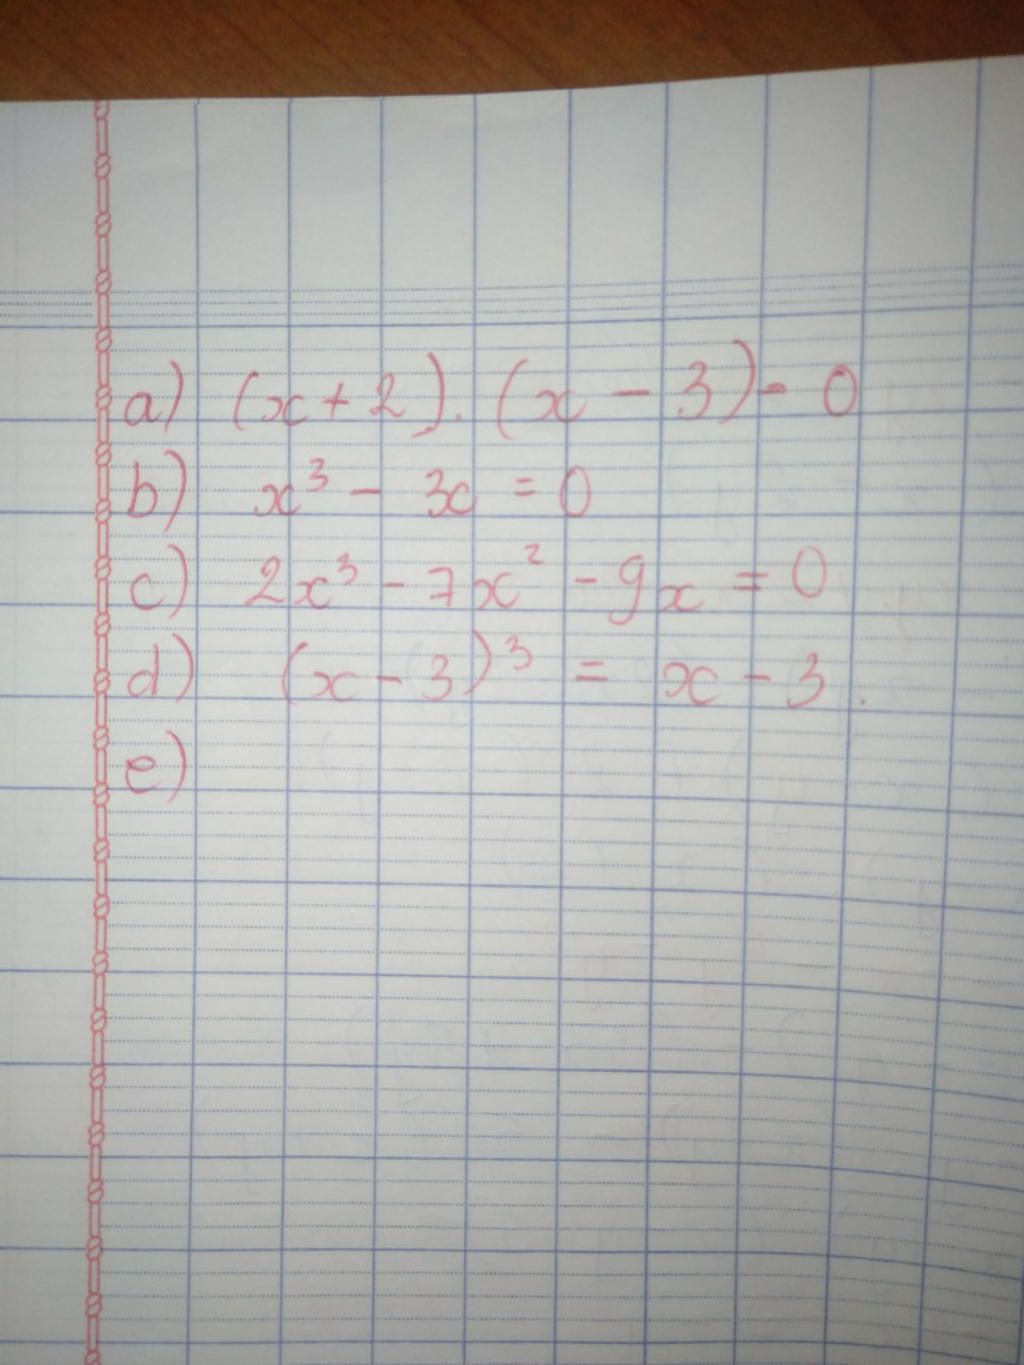 a) (x + 2). (x - 3) = 0
b) x³ - 3x = 0
c) 2x³ - 7x² - 9x = 0
d) (x - 3)³ = x - 3.
e)